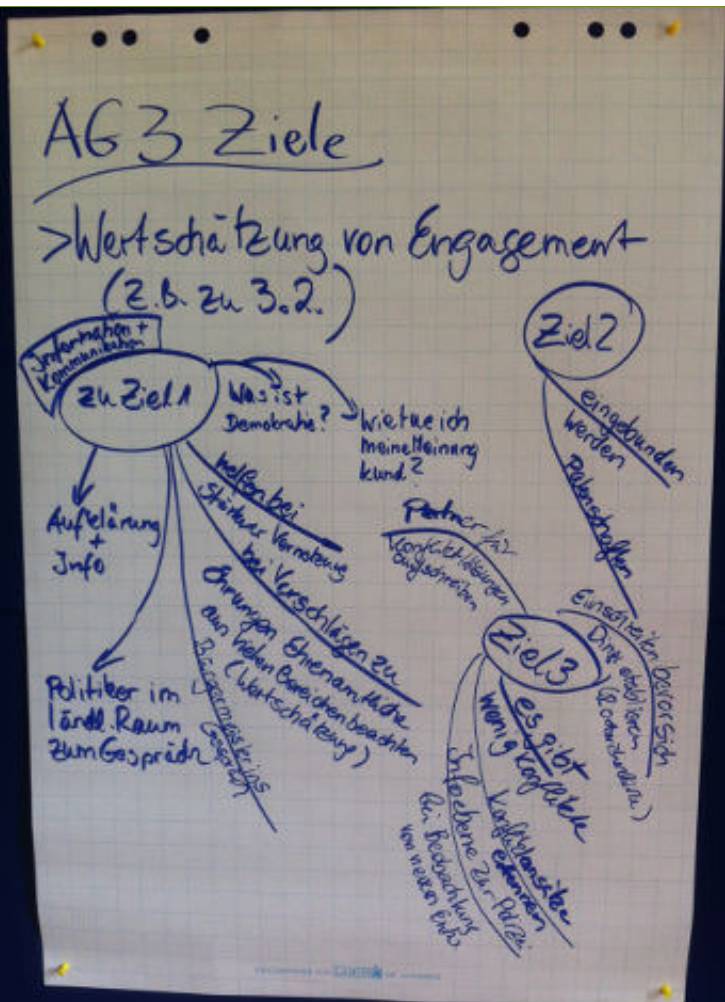 AG 3 Ziele
>Wertschätzung von Engagement
(z.B. zu 3.2.)
Information +
Kommunikation
zu Ziel 1
Was ist
Demokratie?
Wie tue ich
meine Meinung
kund?
Aufklärung
+
Info
Politiker im
ländl. Raum
zum Gespräch
Bürgermeister ins
Gespräch
helfen bei
stärkerer Vernetzung
bei Vorschlägen zu
Ehrungen Ehrenamtliche
aus vielen Bereichen beachten
(Wertschätzung)
Ziel 2
eingebunden
werden
Patenschaften
Ziel 3
Partner für
Konfliktlösungen
Einschreiten bevor sich
Dinge etablieren
es gibt
wenig Konflikte
Konfliktansätze
erkennen
Infoebene zur Polizei
bei Beobachtung
von neuen